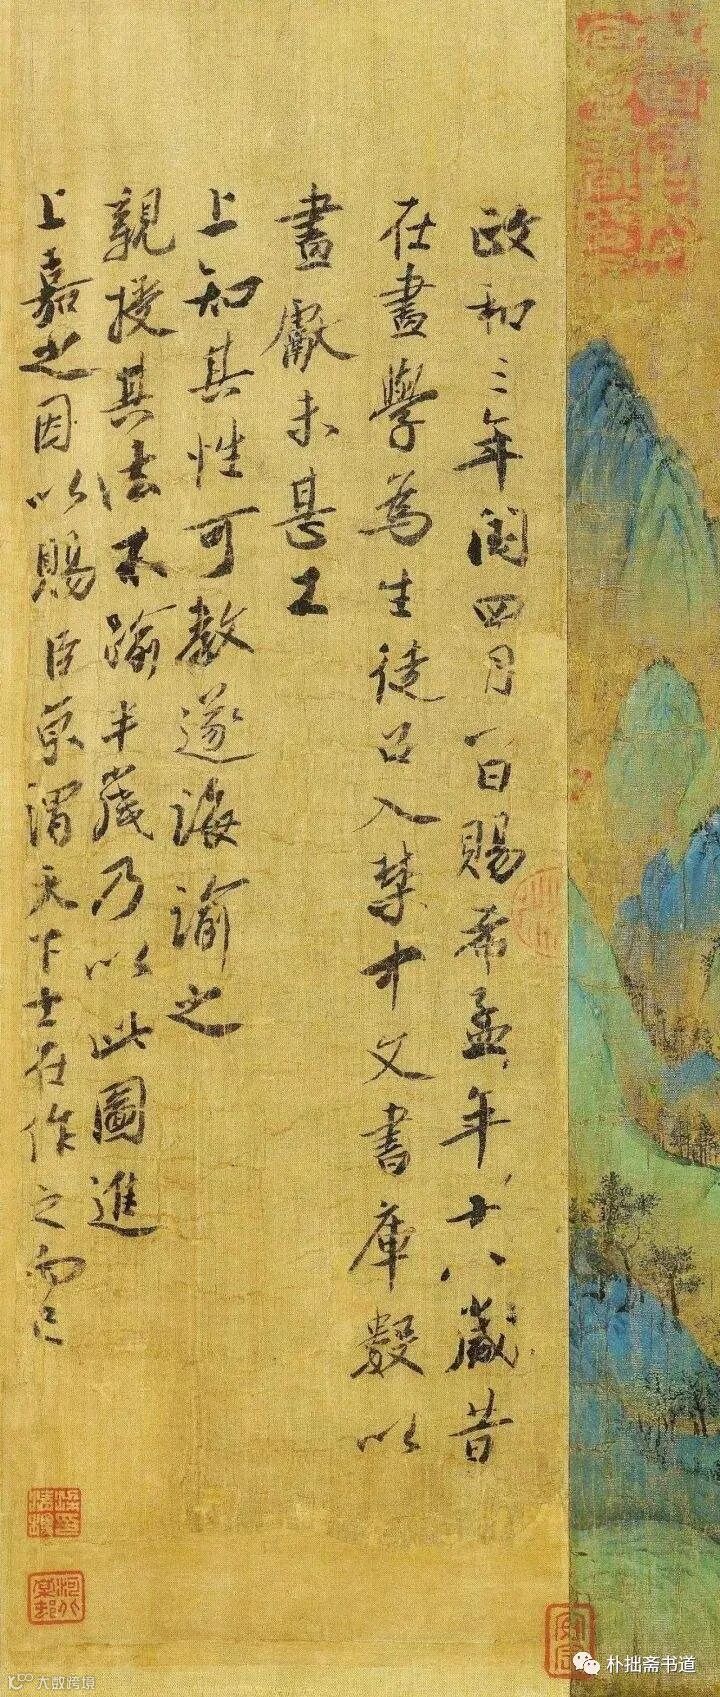 政和三年閏四月一日賜希孟年十八歲昔
在畫學為生徒召入禁中文書庫數以
畫獻未甚工
上知其性可教遂誨諭之
親授其法不踰半歲乃以此圖進
上嘉之因以賜臣京謂天下士在作之而已
河北棠村
安定
朴拙斋书道
大数跨境